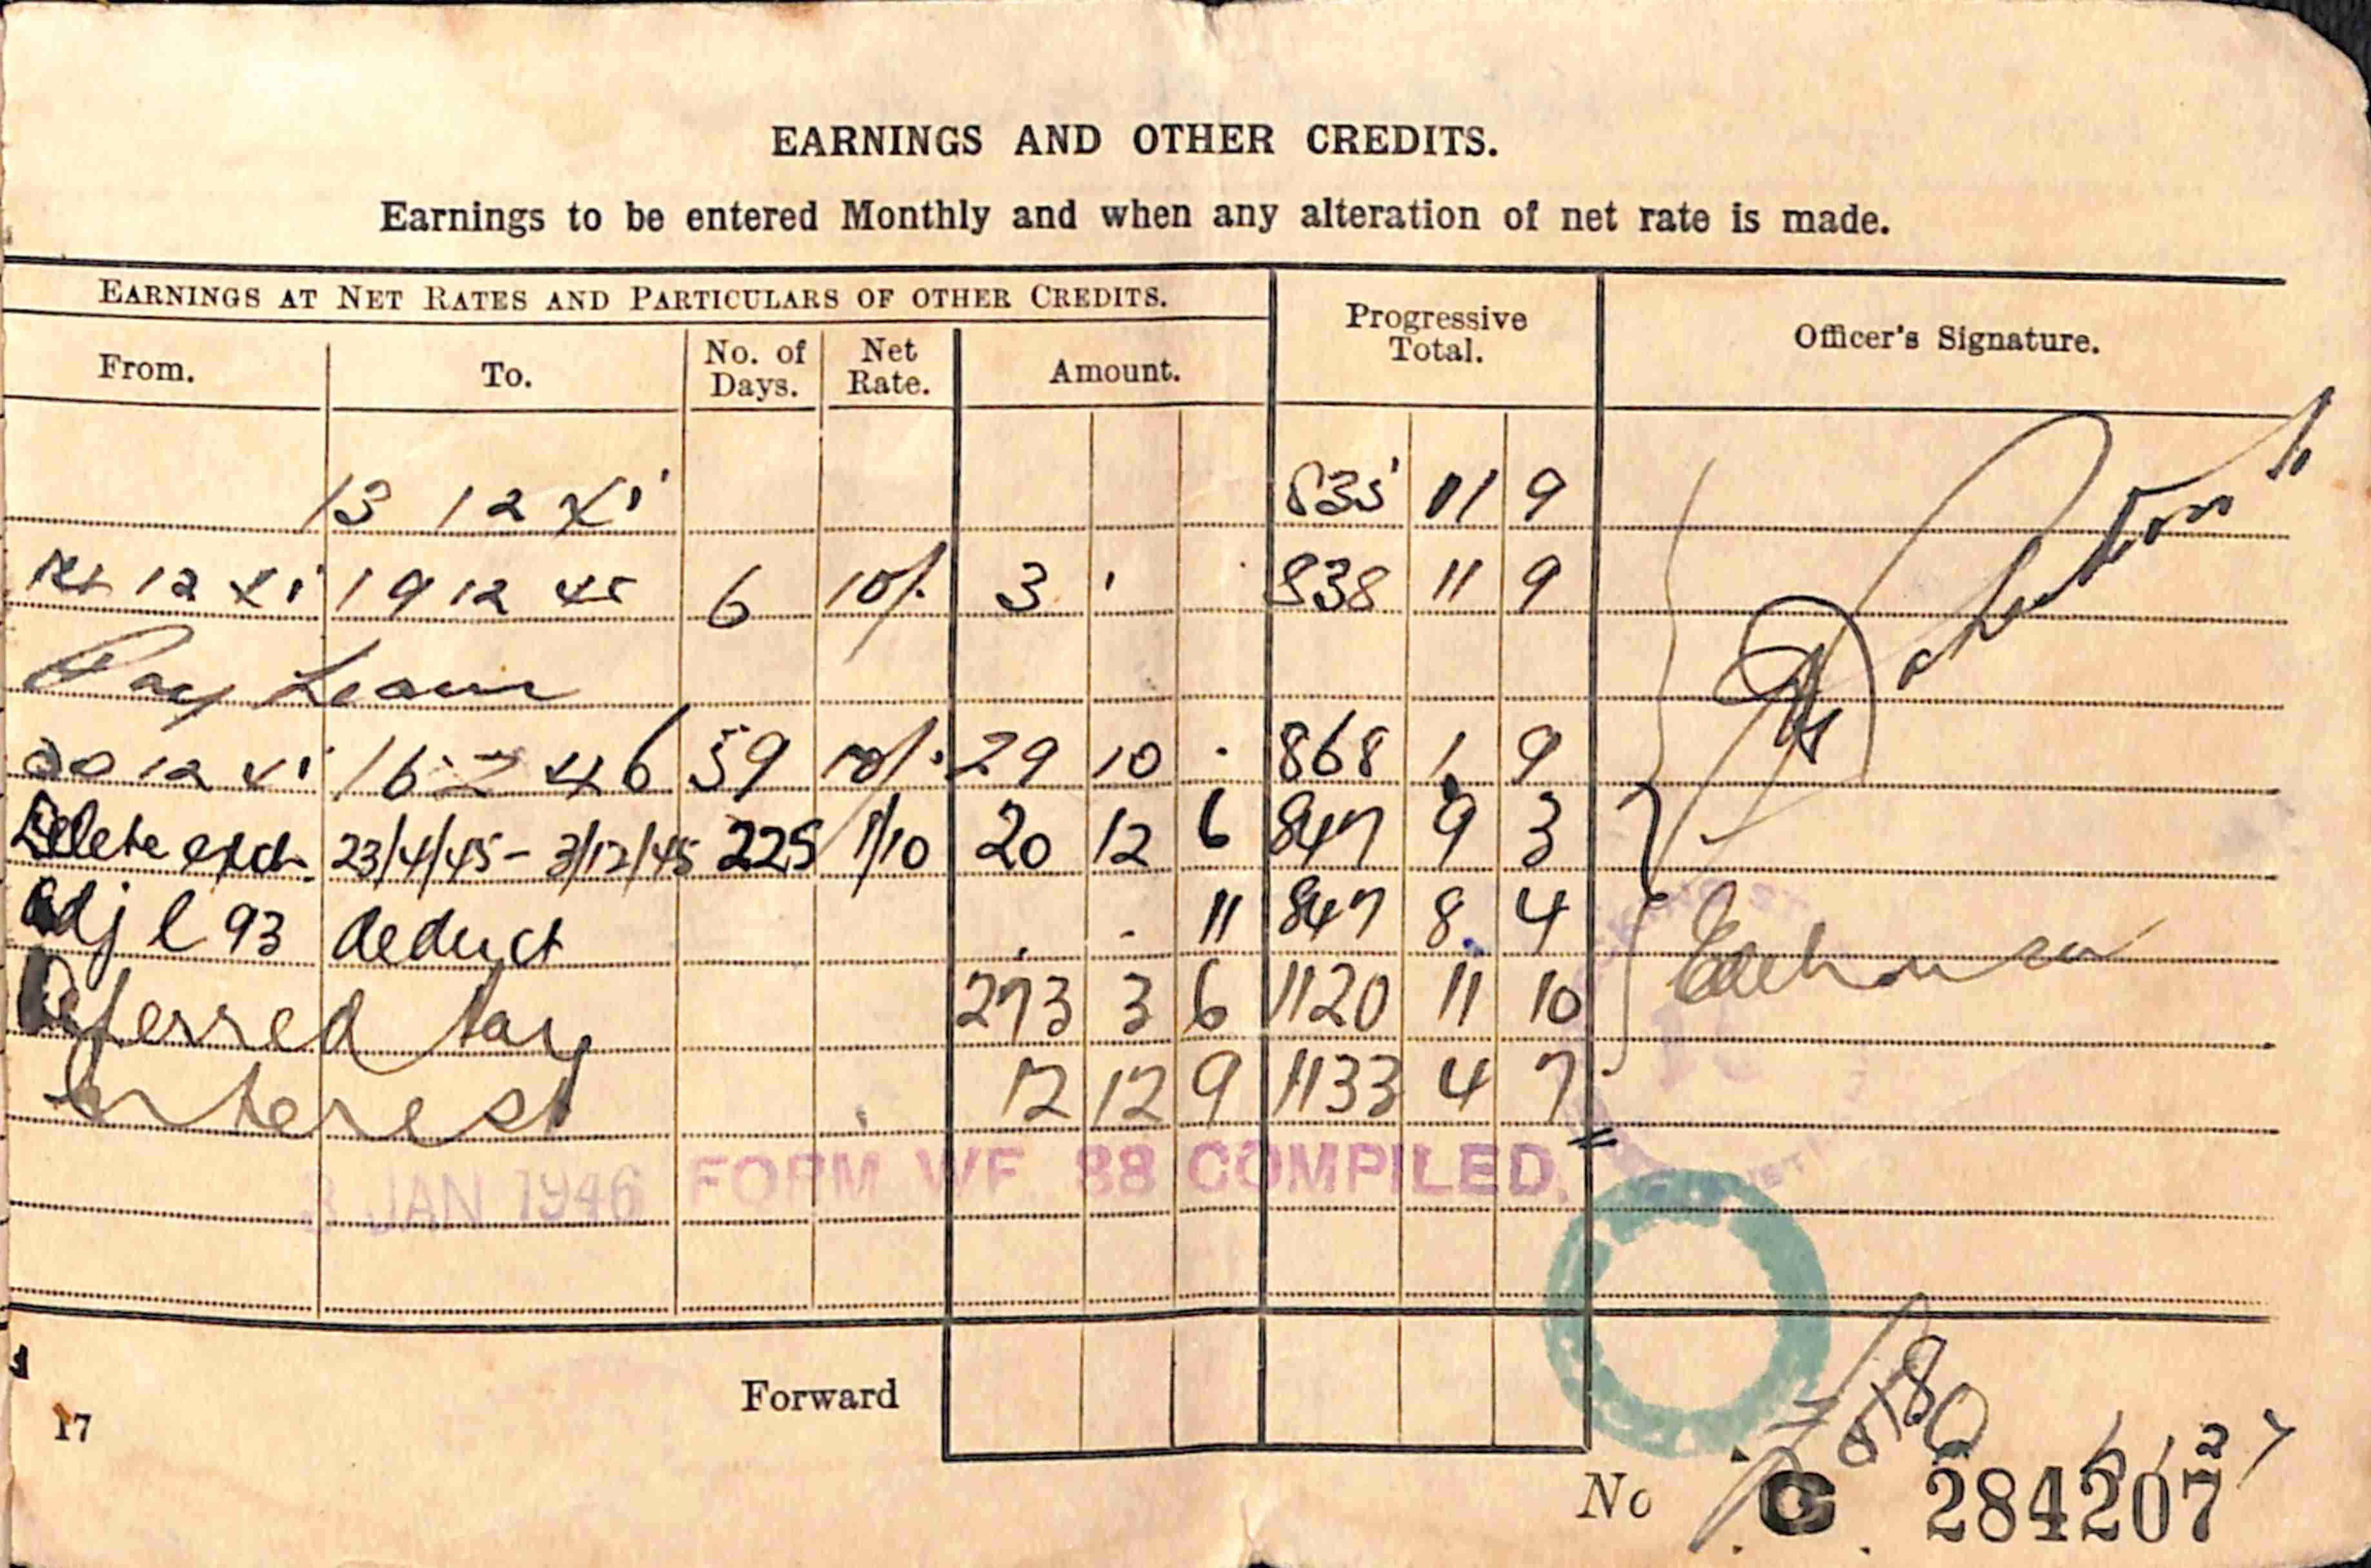 EARNINGS AND OTHER CREDITS.
Earnings to be entered Monthly and when any alteration of net rate is made.
EARNINGS AT NET RATES AND PARTICULARS OF OTHER CREDITS. Progressive Total. Officer's Signature.
From. To. No. of Days. Net Rate. Amount.
13 12 45 835 11 9
14 12 45 19 12 45 6 10/. 3 . . 838 11 9
Pay Leave
20 12 45 16 2 46 59 10/. 29 10 . 868 1 9
Delete exch. 23/4/45 - 3/12/45 225 1/10 20 12 6 847 9 3
adj l 93 deduct . . 11 847 8 4
Deferred Pay 273 3 6 1120 11 10
Interest 12 12 9 1133 4 7
3 JAN 1946 FORM WF. 88 COMPILED.
Forward
17
No G 284207